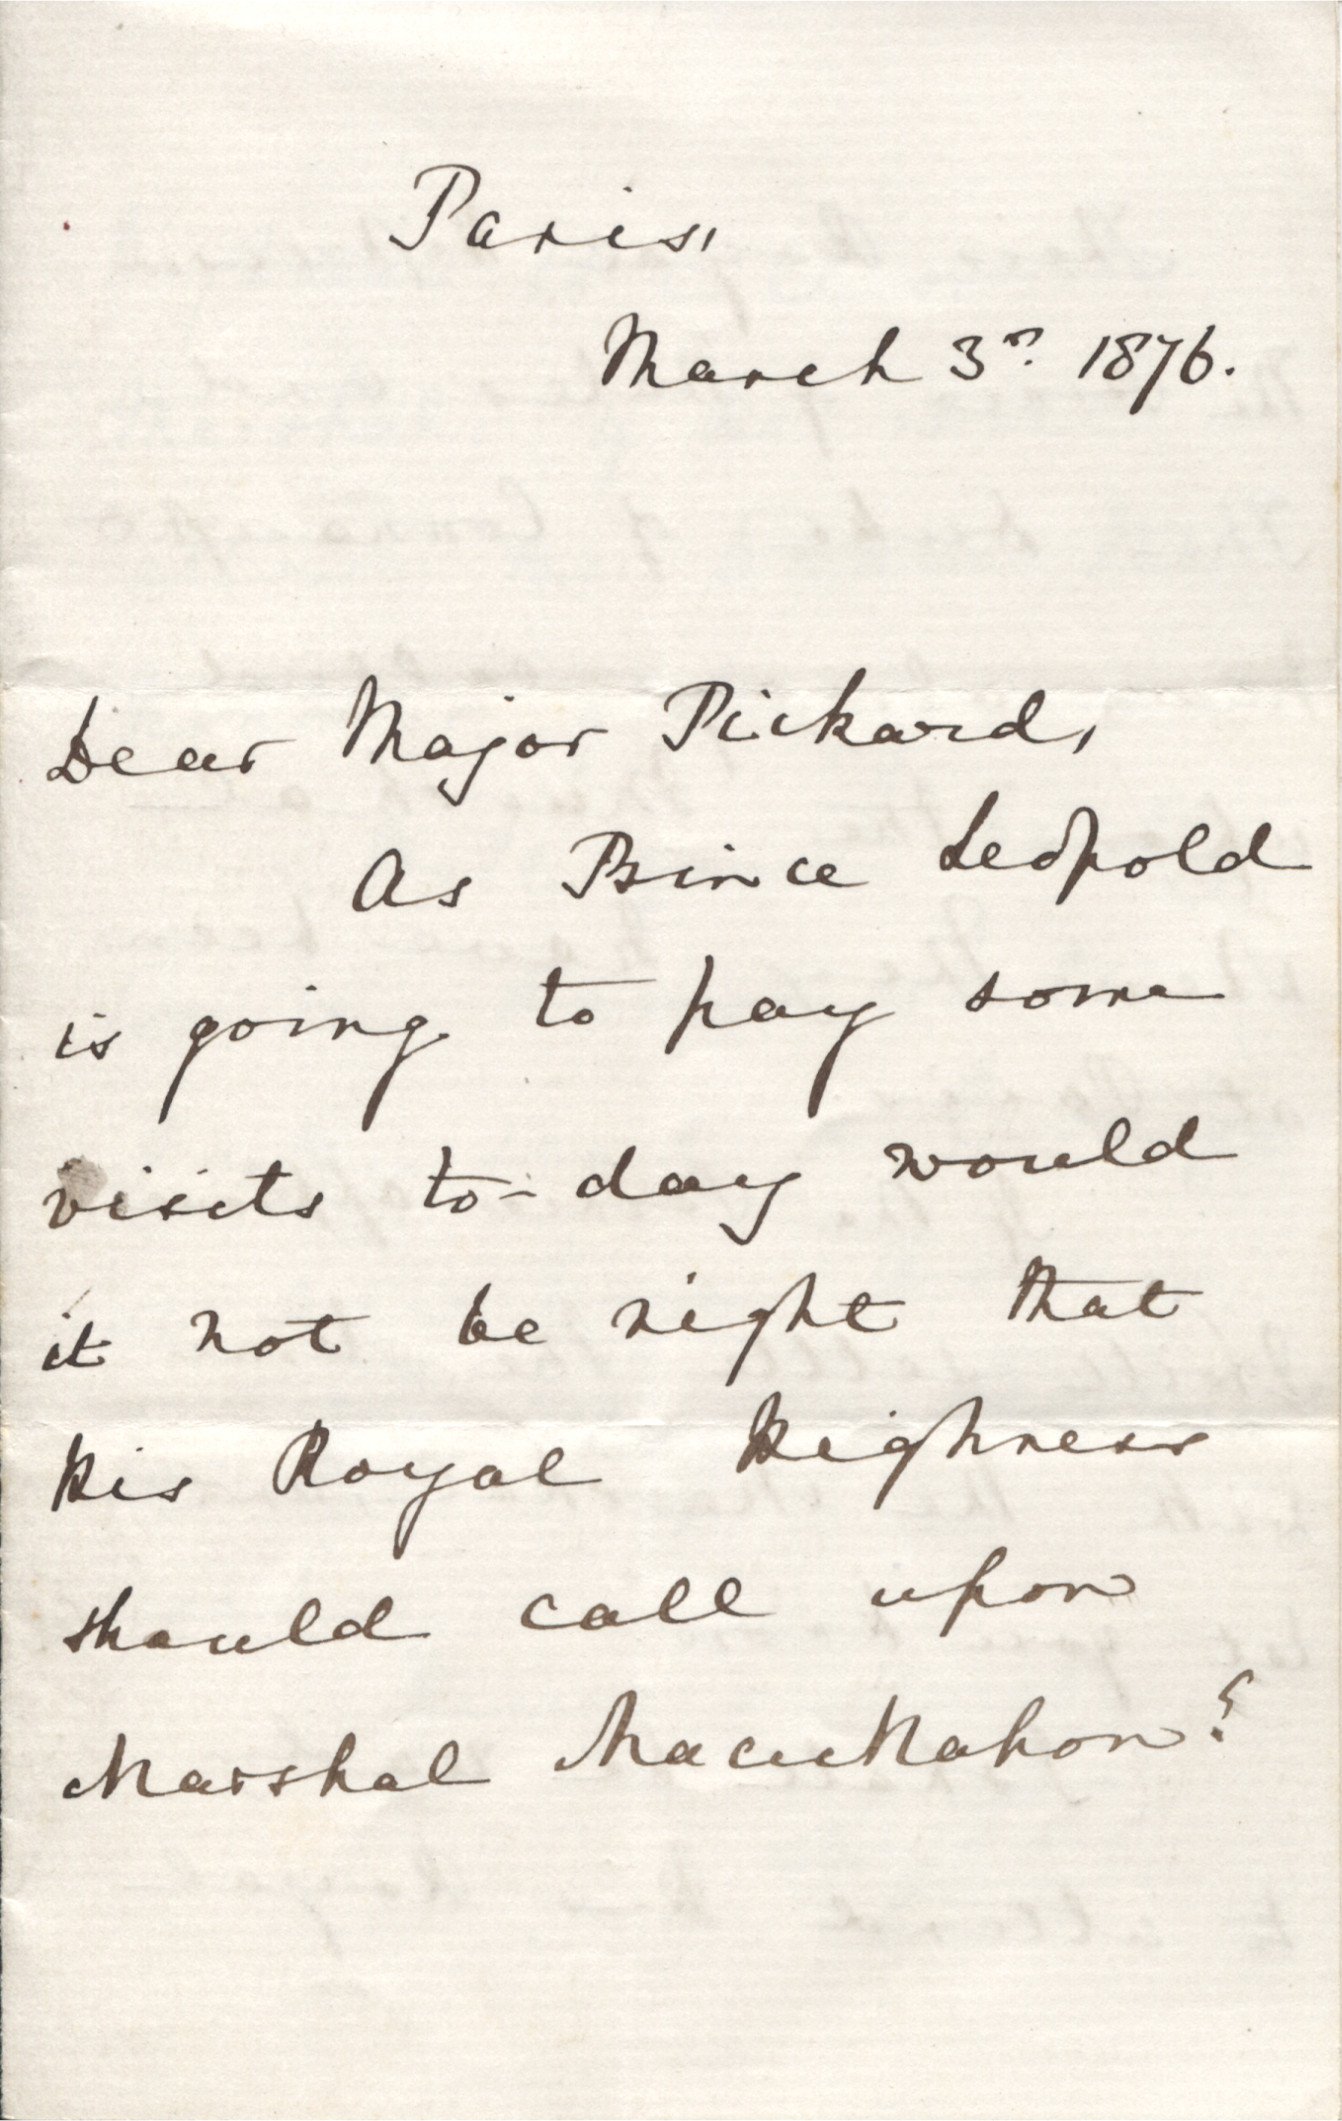 Paris,
March 3rd 1876.
Dear Major Pickard,
As Prince Leopold
is going to pay some
visits to-day would
it not be right that
His Royal Highness
should call upon
Marshal MacMahon?